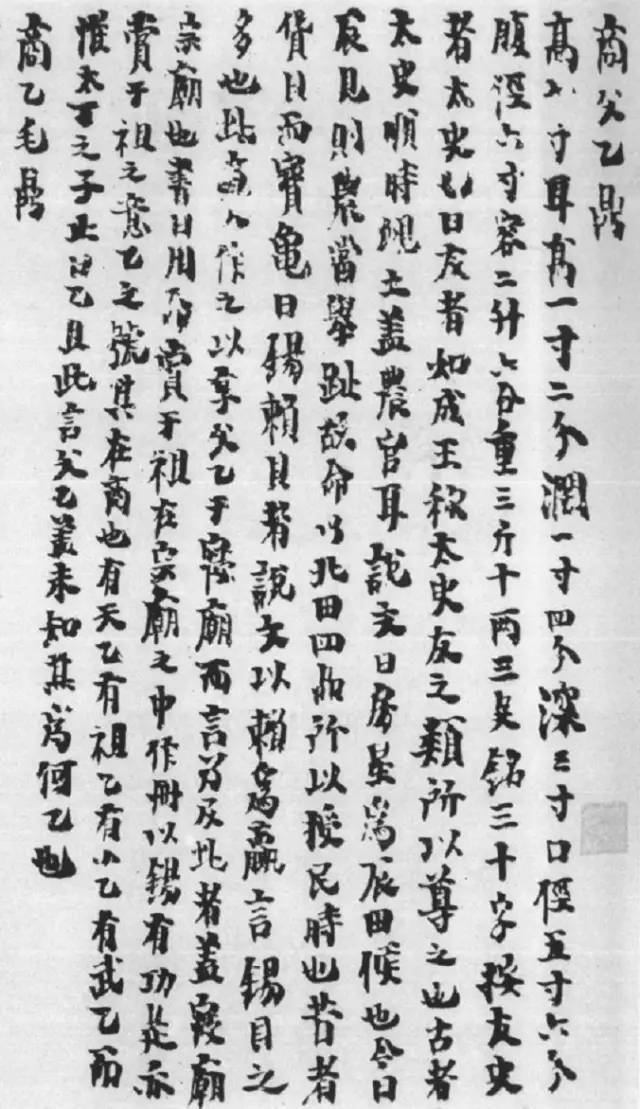 商父乙鼎
高六寸耳高一寸二分濶一寸四分深三寸口徑五寸六分
腹徑六寸容二升六合重三斤十兩三足銘三十字按友史
者太史也曰友者如成王稱太史友之類所以尊之也古者
太史順時覛土盖農官耳說文曰房星為辰田候也今曰
辰見則農當舉趾故命以北田四品所以授民時也若者
貨貝而寶龜曰錫賴貝者說文以賴為贏言錫貝之
多也此商人作之以享父乙于寢廟而言及此者盖寢廟
宗廟也書曰用命賞于祖在宗廟之中作冊以錫有功是亦
賞于祖之意乙之號其在商也有天乙有祖乙有小乙有武乙而
惟太丁之子止曰乙且此言父乙盖未知其為何乙也
商乙毛鼎